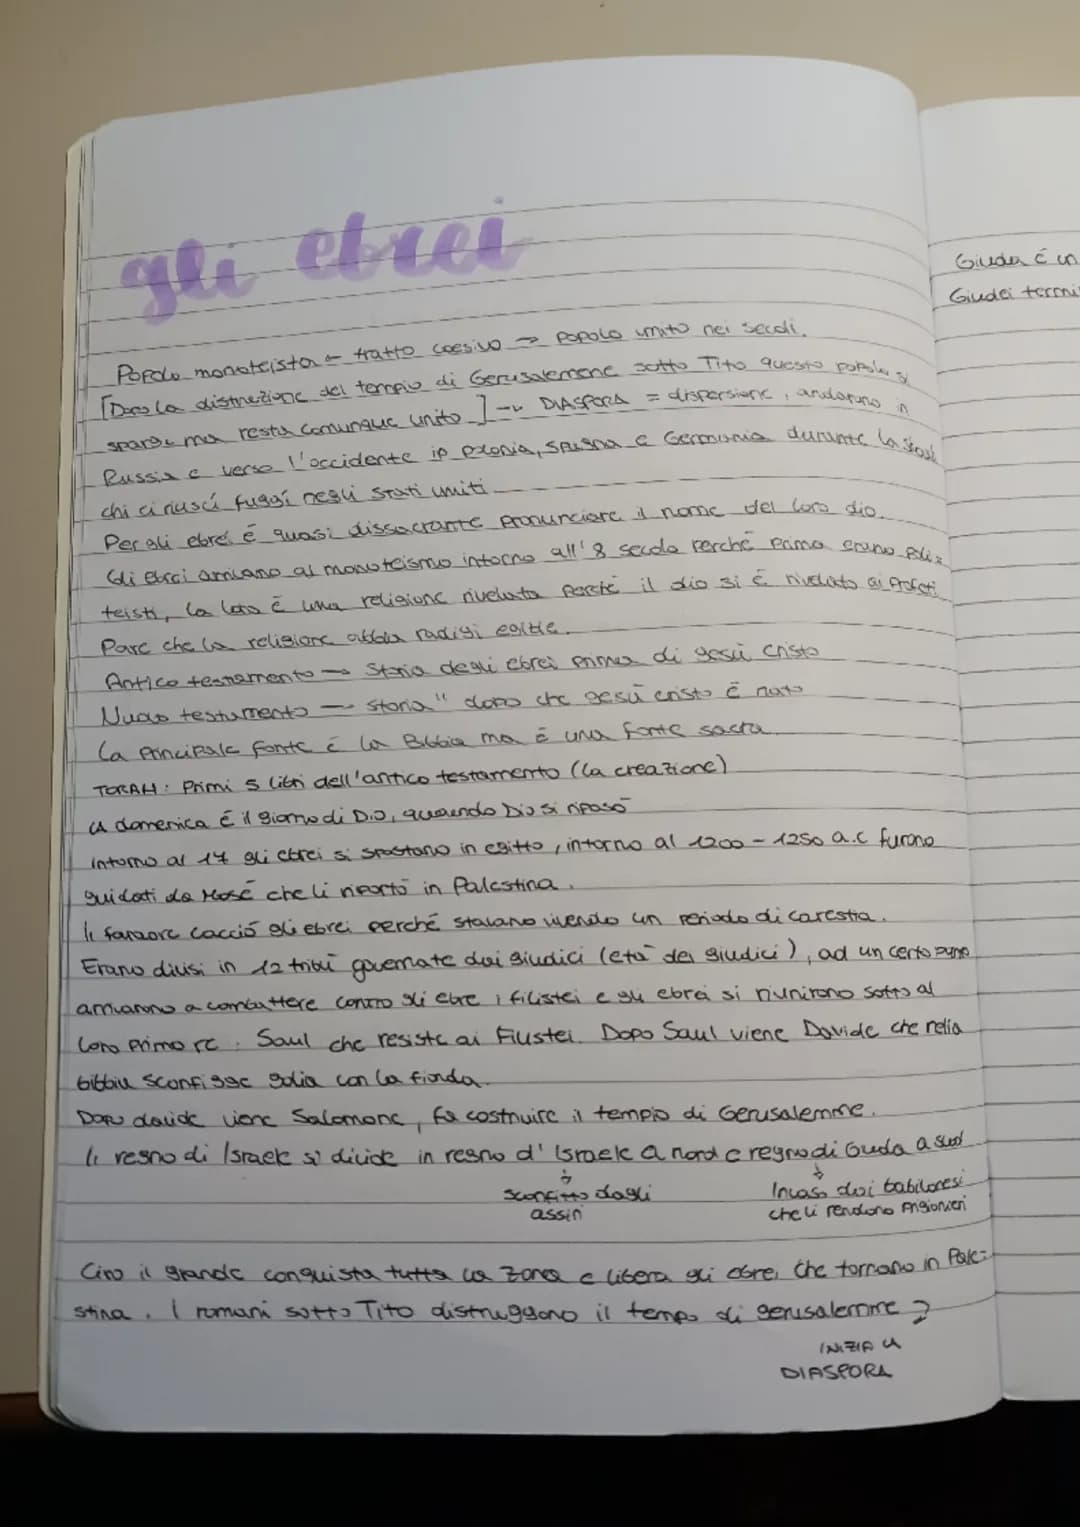 gli ebrei
Popolo monoteista ← tratto coesivo → popolo unito nei secoli.
[Dopo la distruzione del tempio di Gerusalemme sotto Tito questo popolo si
sparge ma resta comunque unito.] → DIASPORA = dispersione, andarono in
Russia e verso l'occidente in Polonia, Spagna e Germania durante la
chi ci riuscì fuggì negli Stati uniti.
Per gli ebrei è quasi dissacrante pronunciare il nome del loro dio.
Gli ebrei arrivano al monoteismo intorno all'8 secolo perché prima erano poli=
teisti, la loro è una religione rivelata perché il dio si è rivelato ai profeti.
Pare che la religione abbia radici egitte.
Antico testamento → Storia degli ebrei prima di gesù cristo
Nuovo testamento → storia " dopo che gesù cristo è nato
La principale fonte è la Bibbia ma è una fonte sacra.
TORAH: Primi 5 libri dell'antico testamento (la creazione)
La domenica è il giorno di Dio, quando Dio si riposò
intorno al 17 gli ebrei si spostano in egitto, intorno al 1200 - 1250 a.c furono
guidati da Mosè che li riportò in Palestina.
Il faraone cacciò gli ebrei perché stavano vivendo un periodo di carestia.
Erano divisi in 12 tribù governate dai giudici (età dei giudici), ad un certo punto
arrivarono a combattere contro gli ebre i filistei e gli ebrei si riunirono sotto al
loro primo re: Saul che resiste ai Filistei. Dopo Saul viene Davide che nella
bibbia sconfigge golia con la fionda.
Dopo davide viene Salomone, fa costruire il tempio di Gerusalemme.
Il regno di Israele si divide in regno d'Israele a nord e regno di Giuda a sud
sconfitto dagli
assiri
Invaso dai babilonesi
che li rendono prigionieri
Ciro il grande conquista tutta la zona e libera gli ebrei che tornano in Pale=
stina. I romani sotto Tito distruggono il tempo di gerusalemme
INIZIA LA
DIASPORA
Giuda è un
Giudei termi